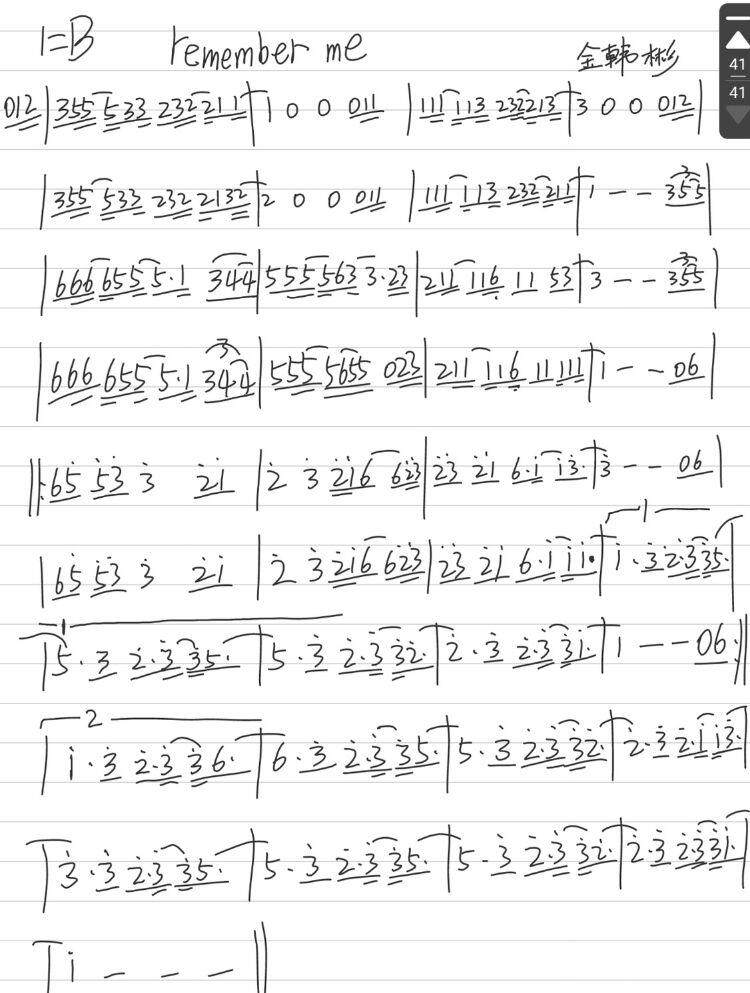 1=B remember me 金韩彬
41
41
012|355 533 232 211|1 0 0 011|111 113 232 213|3 0 0 012|
|355 533 232 2132|2 0 0 011|111 113 232 211|1 - - 355|
|666 655 5·1 344|555 563 3·23|211 116 11 53|3 - - 355|
|666 655 5·1 344|555 5655 023|211 116 11 111|1 - - 06|
‖:65 53 3 21|2 3 216 623|23 21 6·1 13·|3 - - 06|
|65 53 3 21|2 3 216 623|23 21 6·1 11·|1·3 2·3 35·|
1
1
|5·3 2·3 35·|5·3 2·3 32·|2·3 2·3 31·|1 - - 06:‖
2
|1·3 2·3 36·|6·3 2·3 35·|5·3 2·3 32·|2·3 2·1 13·|
|3·3 2·3 35·|5·3 2·3 35·|5·3 2·3 32·|2·3 2·3 31·|
|1 - - -‖